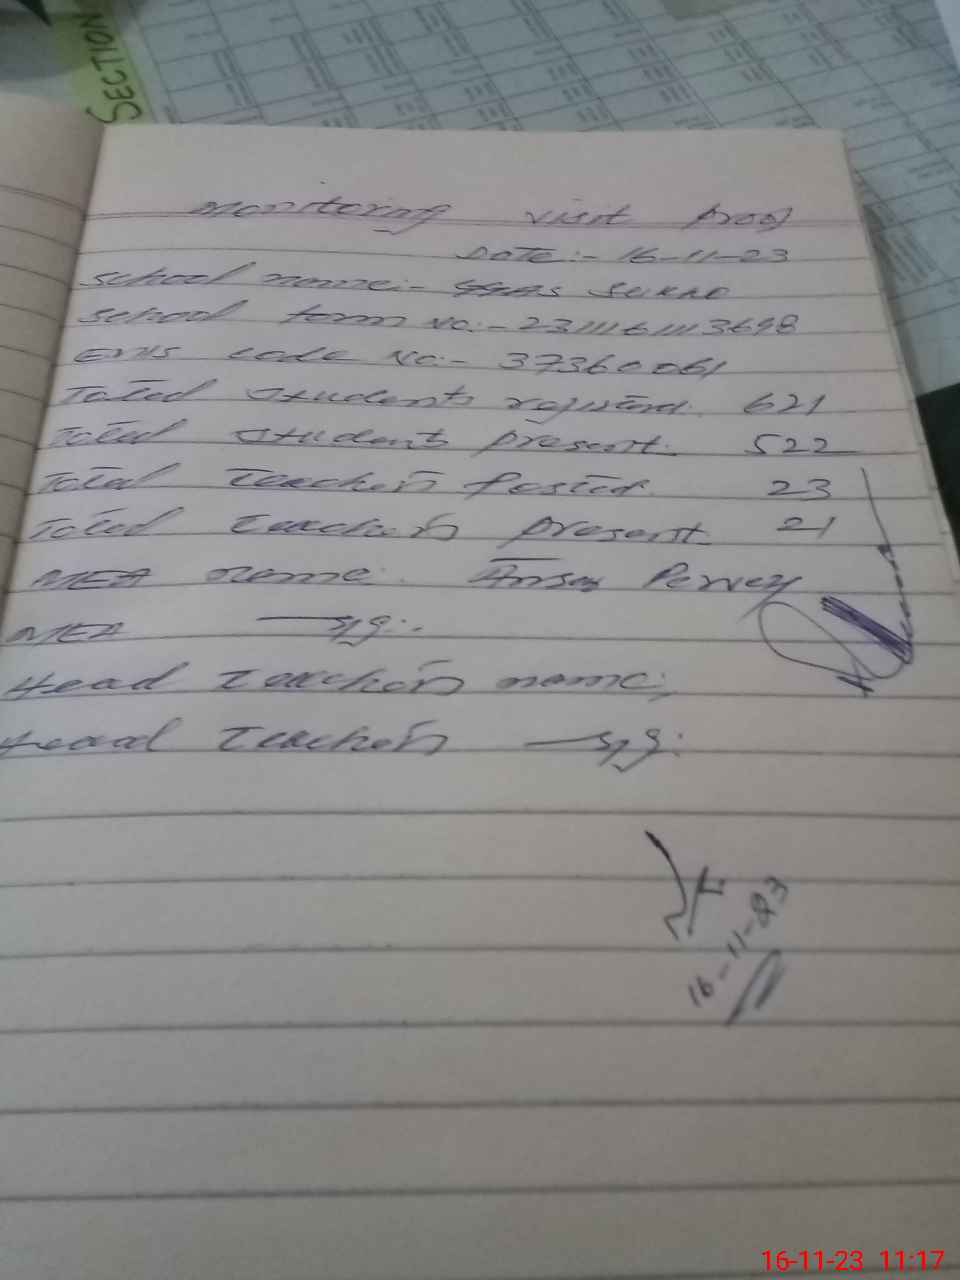 SECTION
monitoring visit proof
Date:- 16-11-23
school name:- Sukko
school form No:- 2311161113698
EMIS code No:- 37360061
Total students registerd. 621
Total students present. 522
Total Teachers Posted. 23
Total Teachers present. 21
MEA name. Ansar Pervez
MEA sig:.
Head Teachers name;
Head Teachers sig:
16-11-23
16-11-23 11:17